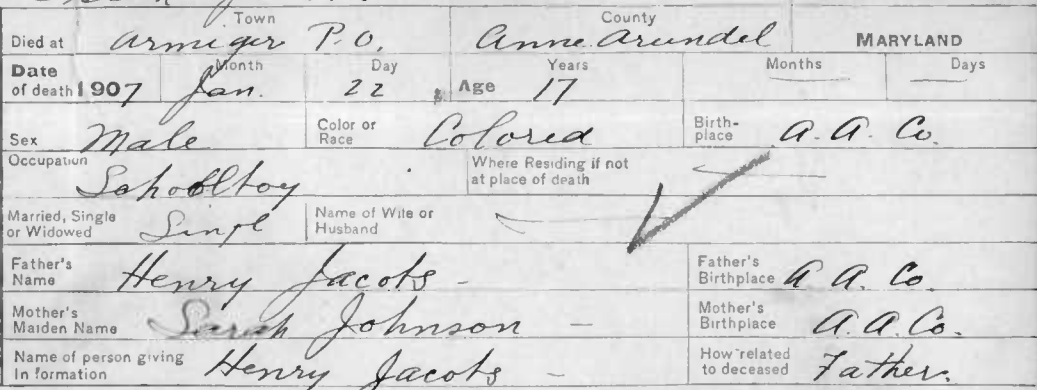 Town County
Died at Armiger P.O. Anne Arundel MARYLAND
Date of death 1907 Month Jan. Day 22 Age Years 17 Months — Days —
Sex Male Color or Race Colored Birth-place A. A. Co.
Occupation Schoolboy Where Residing if not at place of death —
Married, Single or Widowed Singl Name of Wife or Husband —
Father's Name Henry Jacobs - Father's Birthplace A. A. Co.
Mother's Maiden Name Sarah Johnson - Mother's Birthplace A. A. Co.
Name of person giving Information Henry Jacobs - How related to deceased Father.